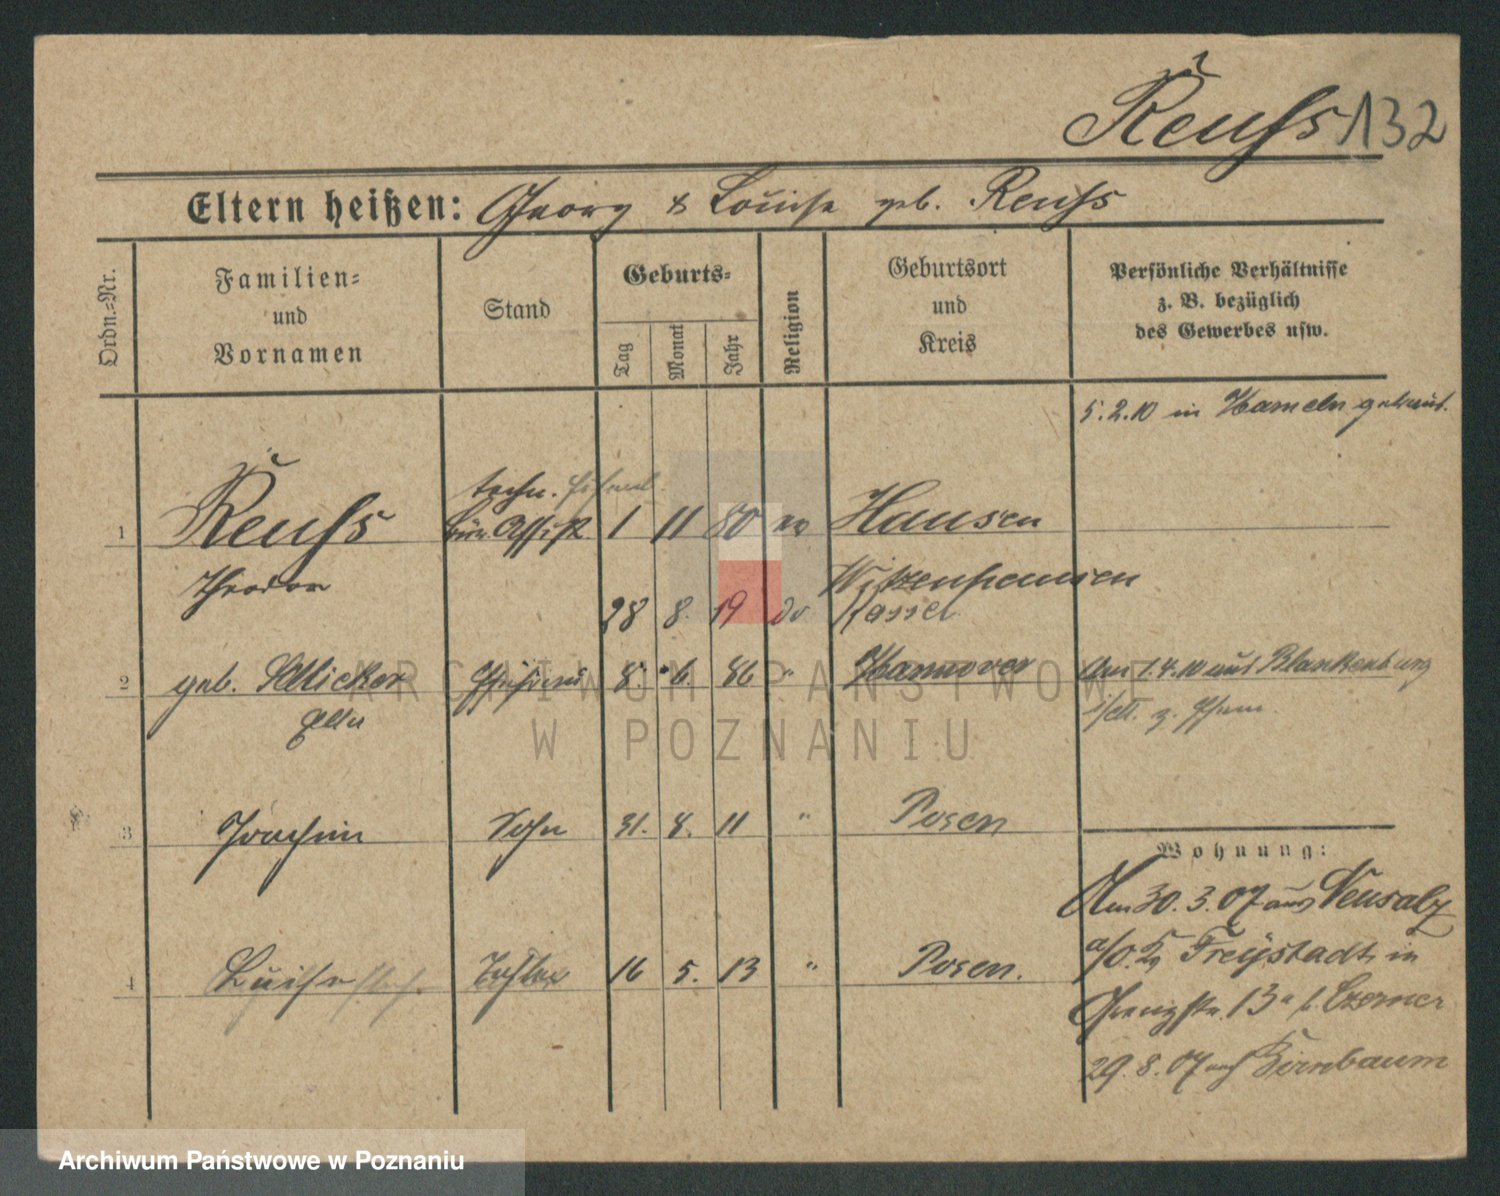 Reuſs 132
Eltern heißen: Georg & Louise geb. Reuſs
Ordn.=Nr.
Familien=
und
Vornamen
Stand
Geburts=
Tag
Monat
Jahr
Religion
Geburtsort
und
Kreis
Persönliche Verhältnisse
z. B. bezüglich
des Gewerbes usw.
5.2.10 in Hameln getraut.
techn.
1 Reuſs Bür. Assist. 1 11 80 ev Hausen
Theodor
Witzenhausen
28 8. 19 do Kassel
2 geb. Ehefrau 8. 6. 86 " Hannover Am 1.4.10 aus Blankenburg
Ella
3 Joachim Sohn 31. 8. 11 " Posen
Wohnung:
Am 30. 3. 07 aus Neusalz
a/O. Kr Freystadt in
4 Luise Tochter 16 5. 13 " Posen.
13a b. Czerner
29. 8. 07 nach Birnbaum
ARCHIWUM PAŃSTWOWE
W POZNANIU
Archiwum Państwowe w Poznaniu